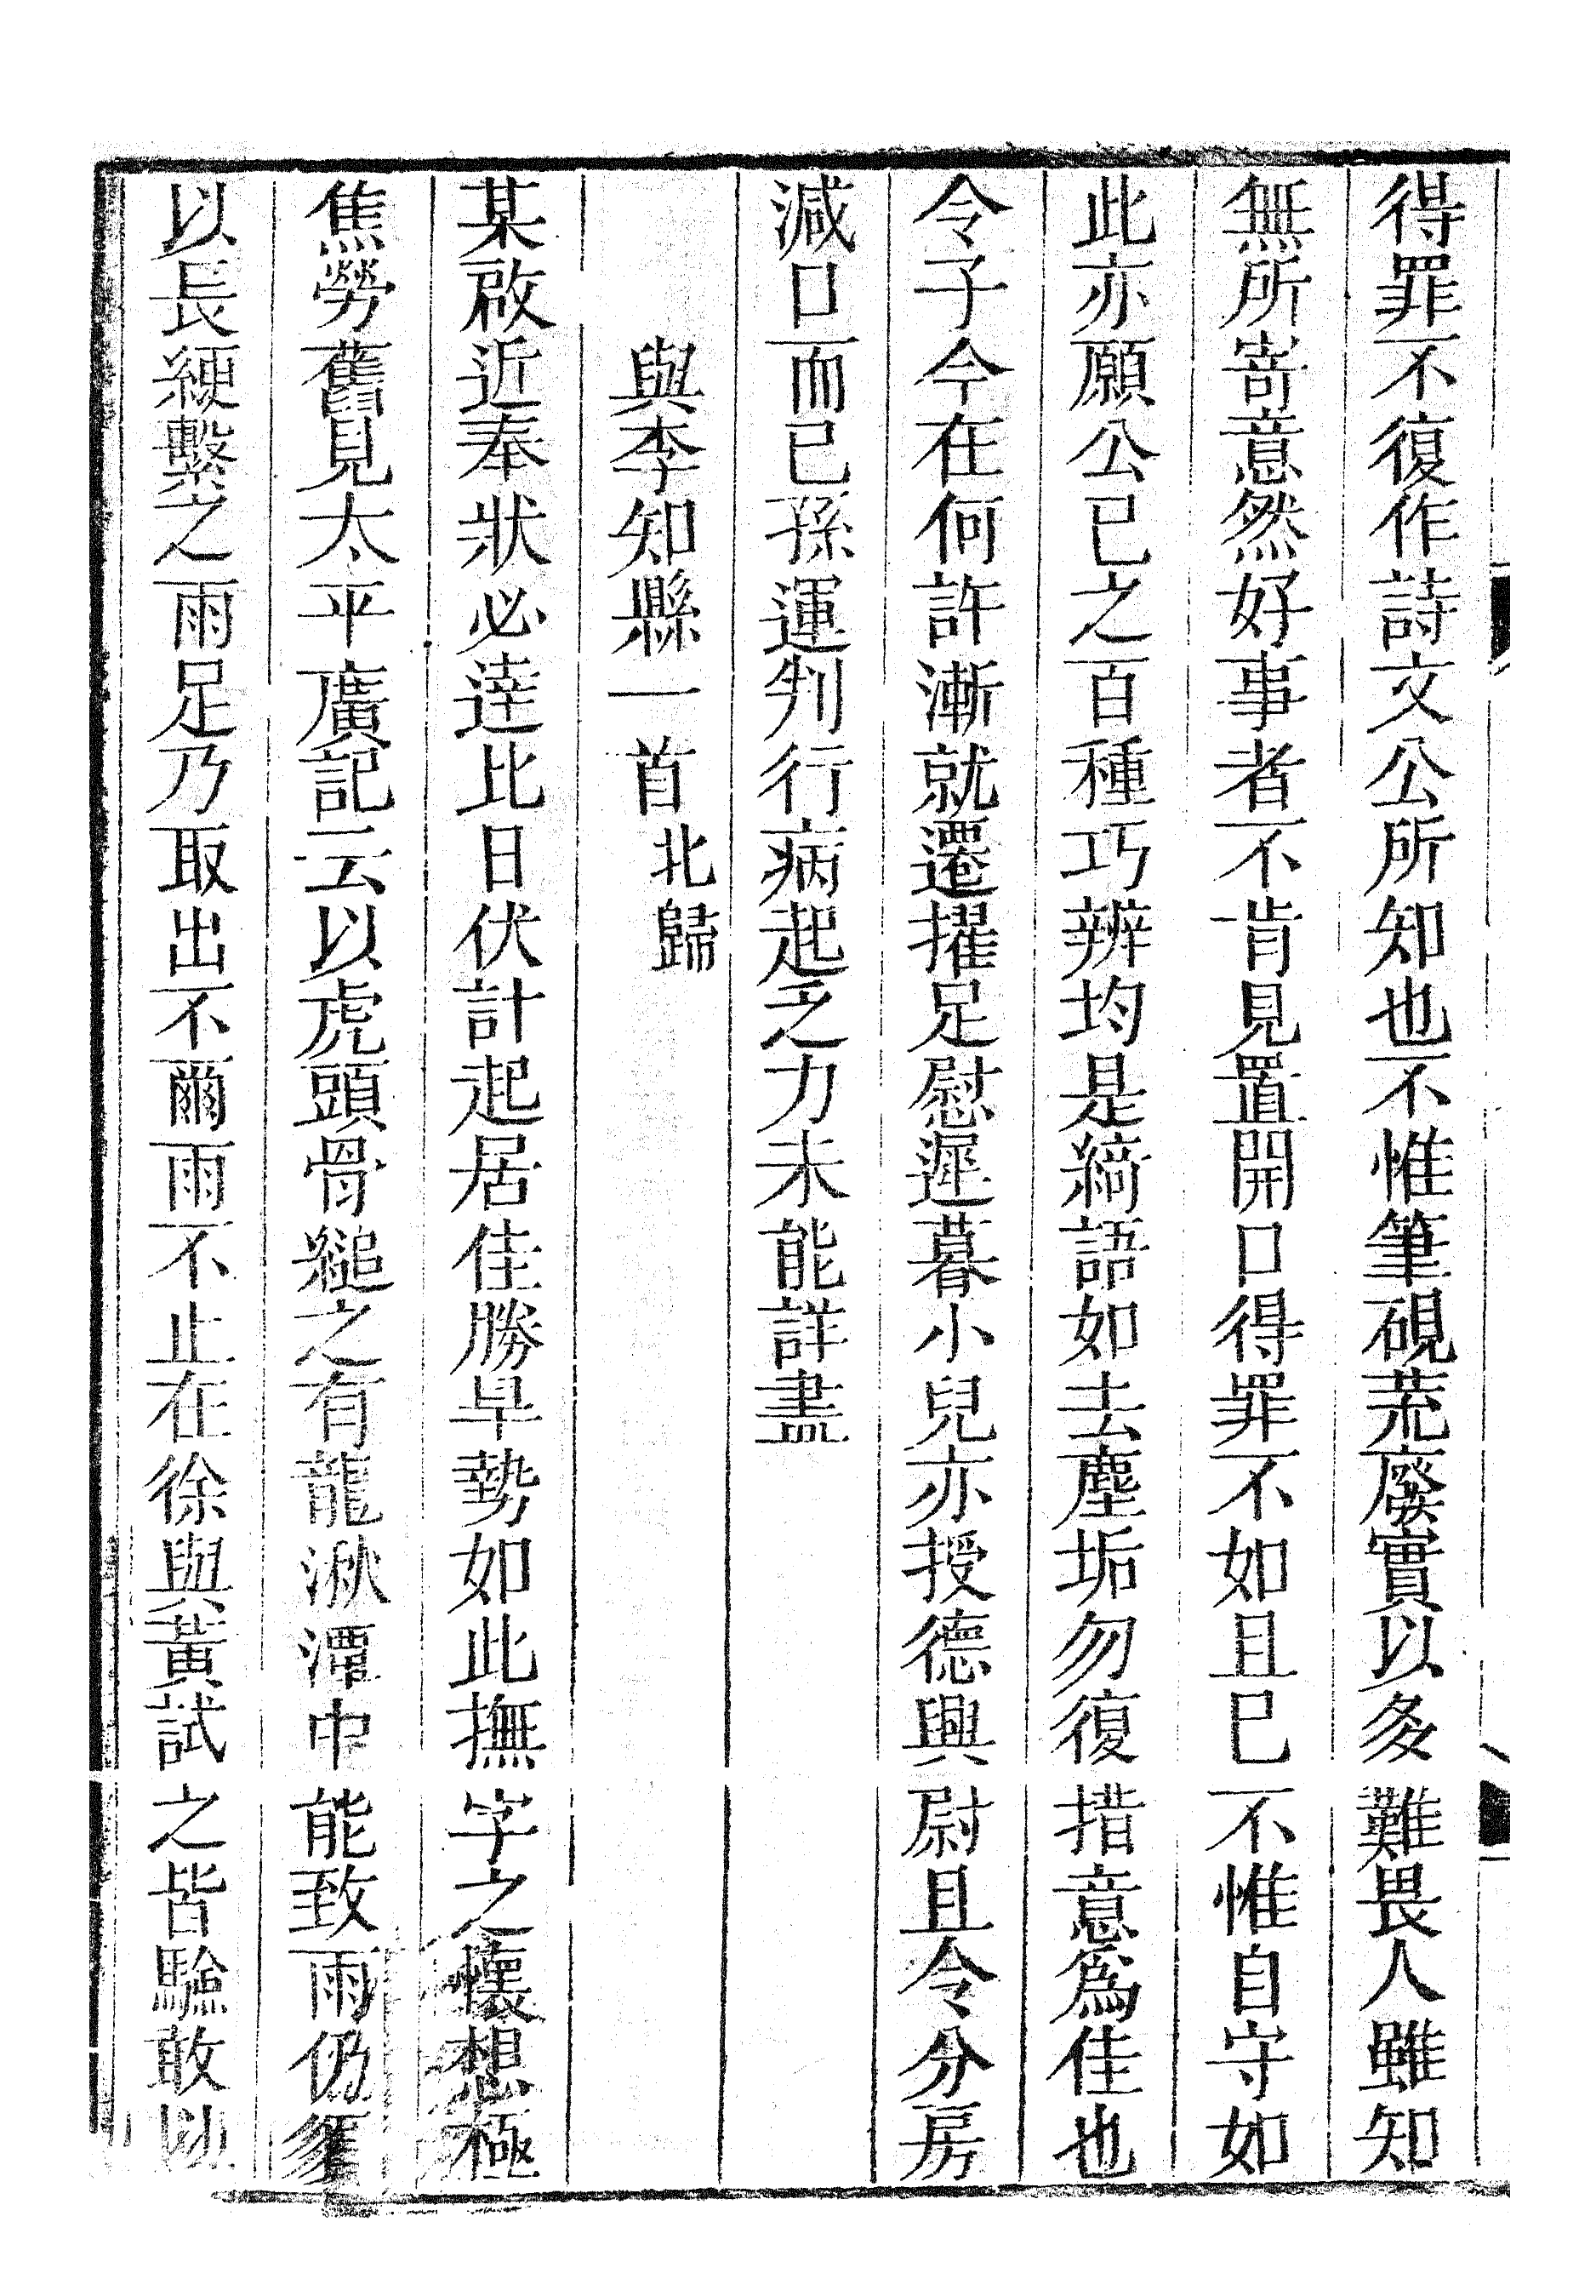 得罪不復作詩文公所知也不惟筆硯荒廢實以多難畏人雖知
無所寄意然好事者不肯見置開口得罪不如且已不惟自守如
此亦願公已之百種巧辨均是綺語如去塵垢勿復措意為佳也
令子今在何許漸就遷擢足慰遲暮小兒亦授德興尉且令分房
減口而已孫運判行病起乏力未能詳盡
與李知縣一首北歸
某啟近奉狀必達比日伏計起居佳勝旱勢如此撫字之懷想極
焦勞舊見太平廣記云以虎頭骨縋之有龍湫潭中能致雨仍須
以長綆繫之雨足乃取出不爾雨不止在徐與黃試之皆驗敢以